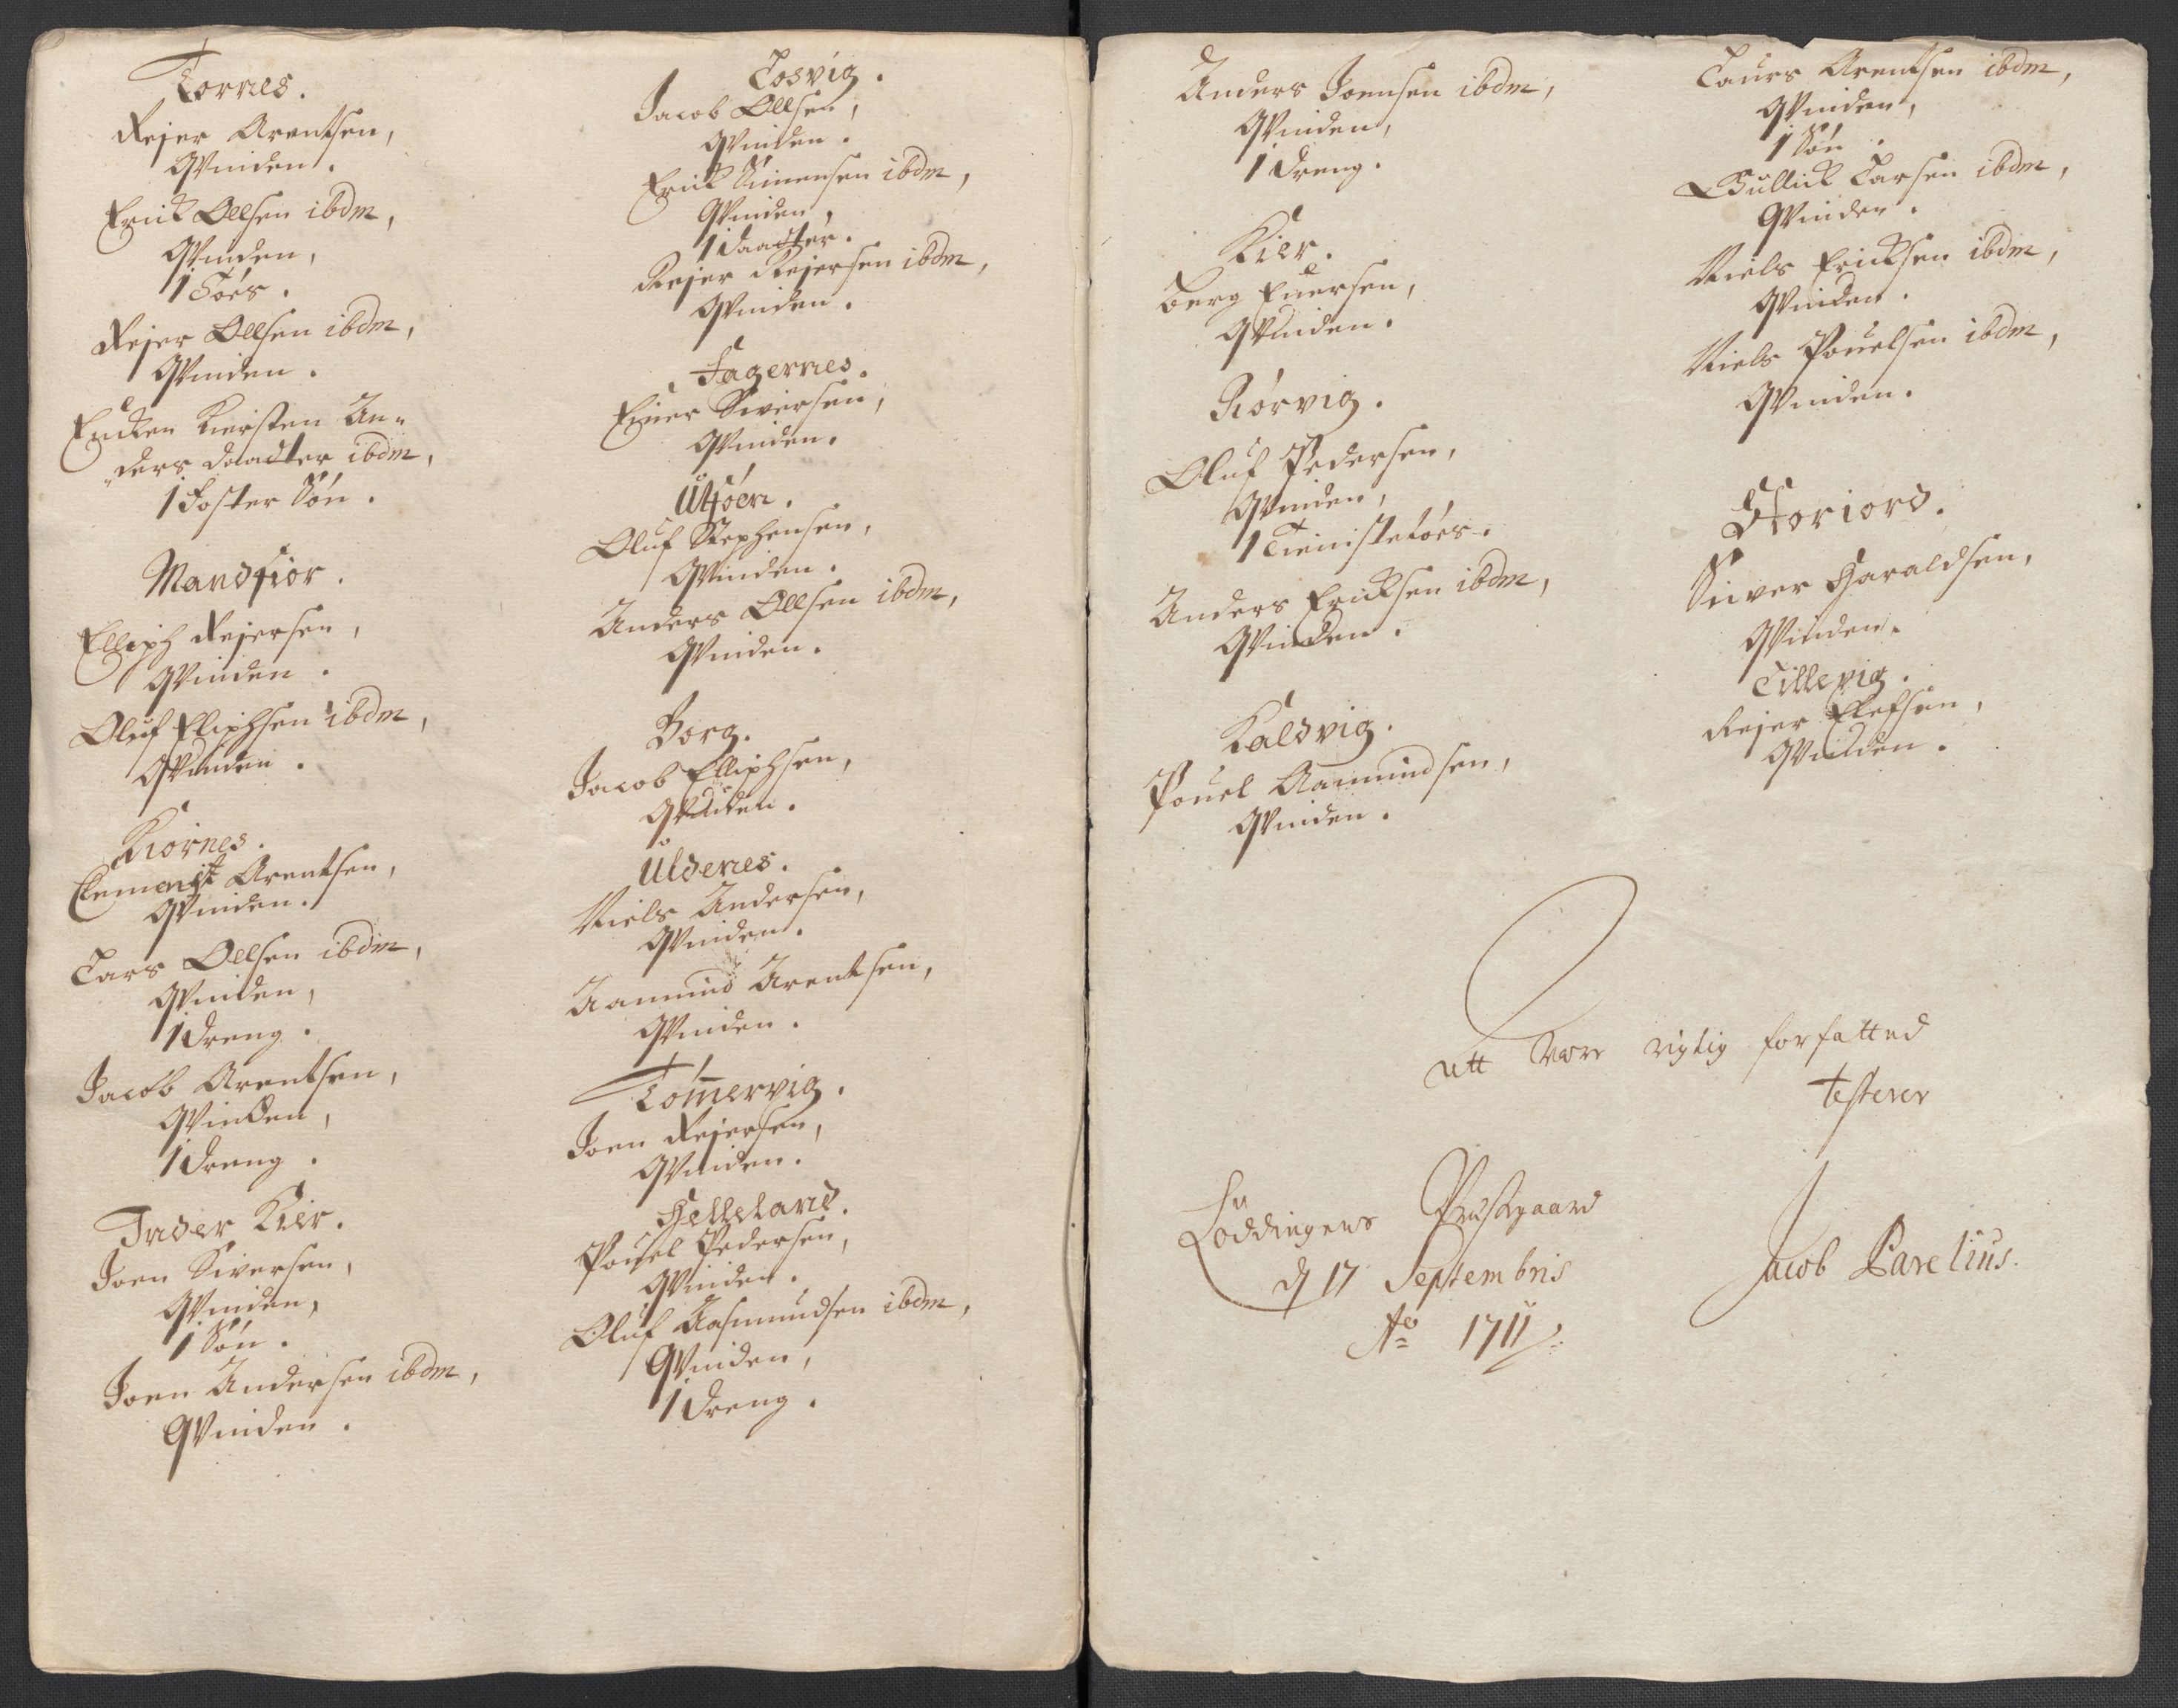 Tornes.
Rejer Arentsen,
Qvinden.
Erick Ollsen ibdm,
Qvinden,
1 Tøs.
Rejer Ollsen ibdm,
Qvinden.
Encken Kirsten An-
ders daatter ibdm,
1 Foster Søn.
Mandfior.
Elliph Rejersen,
Qvinden.
Oluf Eliphsen ibdm,
Qvinden.
Kiörnes.
Clemenst Arentsen,
Qvinden.
Lars Ollsen ibdm,
Qvinden,
1 Dreng.
Jacob Arentsen,
Qvinden,
1 Dreng.
Inder Kier.
Joen Siversen,
Qvinden,
1 Søn.
Joen Andersen ibdm,
Qvinden.
Losvig.
Jacob Ollsen,
Qvinden.
Erick Simensen ibdm,
Qvinden,
1 Daatter.
Rejer Rejersen ibdm,
Qvinden.
Fagernes.
Einer Siversen,
Qvinden.
Oluf Stephensen,
Qvinden.
Anders Ollsen ibdm,
Qvinden.
Borg.
Jacob Elliphsen,
Qvinden.
Uldenes.
Niels Andersen,
Qvinden.
Aamund Arentsen,
Qvinden.
Tömmervig.
Joen Rejersen,
Qvinden.
Helleland.
Pouel Pedersen,
Qvinden.
Oluf Aasmundsen ibdm,
Qvinden,
1 Dreng.
Anders Joensen ibdm,
Qvinden,
1 Dreng.
Kier.
Berg Enersen,
Qvinden.
Rörvig.
Oluf Pedersen,
Qvinden,
1 Tienistetøs.
Anders Ericksen ibdm,
Qvinden.
Kaldvig.
Pouel Aamundsen,
Qvinden.
Laurs Arentsen ibdm,
Qvinden,
1 Søn.
Gullick Larsen ibdm,
Qvinden.
Niels Ericksen ibdm,
Qvinden.
Niels Pouelsen ibdm,
Qvinden.
Siver Haraldsen,
Qvinden.
Tillevig.
Rejer Elefsen,
Qvinden.
att være rigtig forfatted
testerer
Löddingens Præstgaard
d 17 Septembris
Ao 1711
Jacob Parelius.